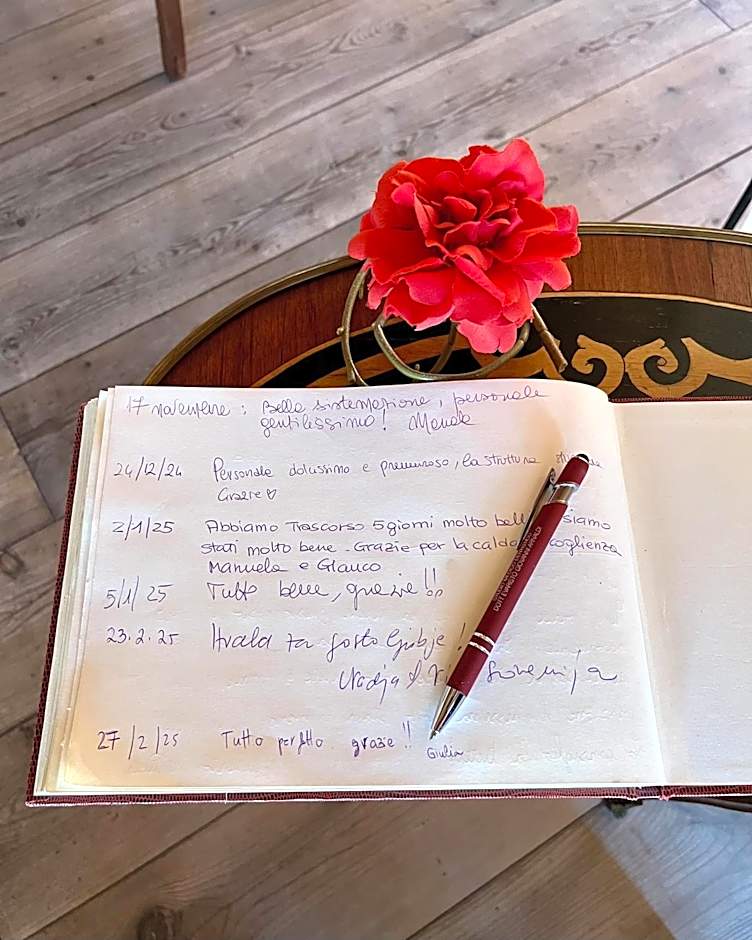 17 novembre : Bella sistemazione, personale
gentilissimo!
24/12/24 Personale dolcissimo e premuroso, la struttura
Grazie ♡
2/1/25 Abbiamo Trascorso 5 giorni molto belli siamo
stati molto bene. Grazie per la calda accoglienza
Manuela e Glauco
5/1/25 Tutto bene, grazie!!
23.2.25 Hvala za gostoljubje!
Nadja Slovenija
27/2/25 Tutto perfetto grazie!! Giulia